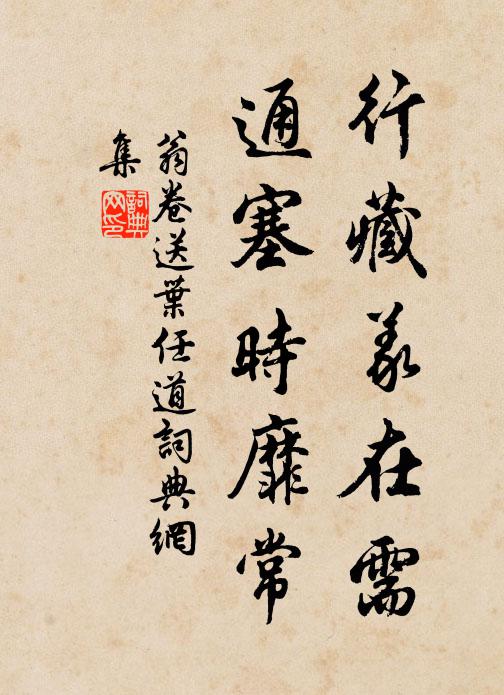 行藏義在需
通塞時靡常
翁卷送葉任道詞典網
集
詞典網印